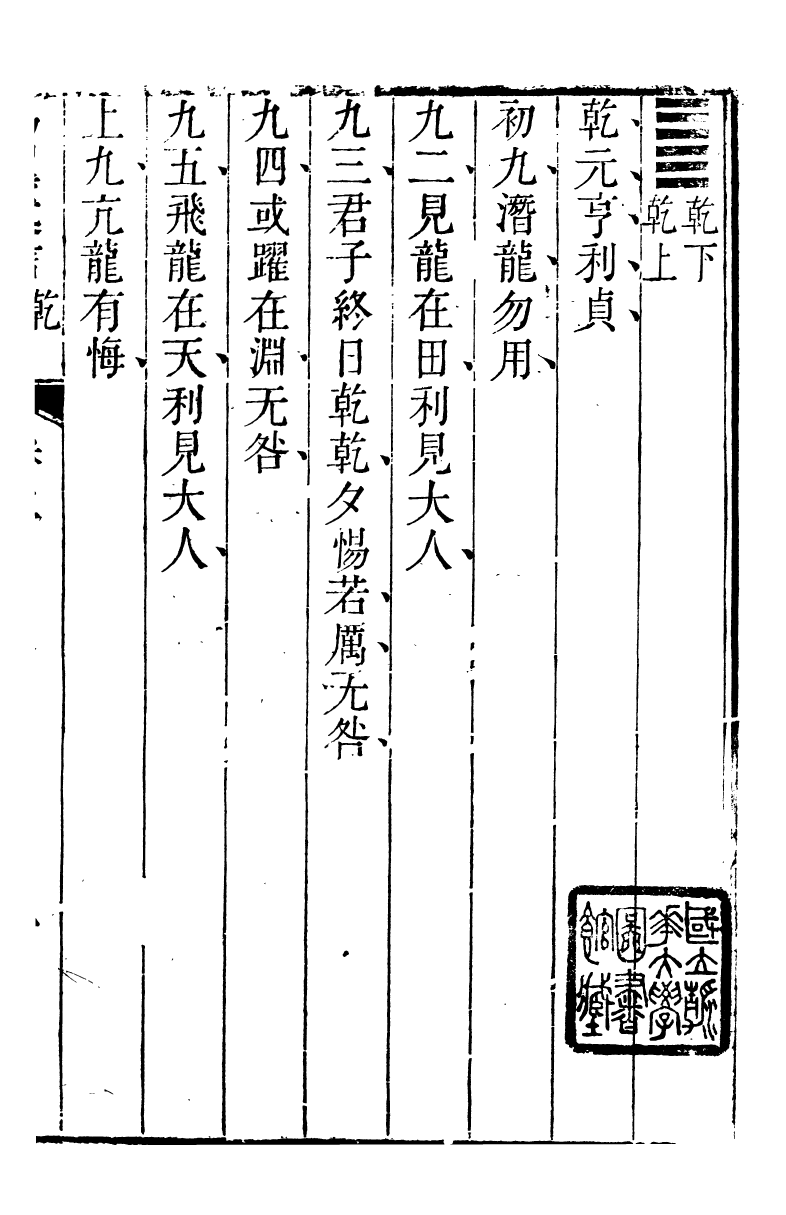 ䷀
乾下
乾上
乾、元、亨、利、貞、
初九、潛龍、勿用、
九二、見龍在田、利見大人、
九三、君子終日乾乾、夕惕若、厲、无咎、
九四、或躍在淵、无咎、
九五、飛龍在天、利見大人、
上九、亢龍有悔、
乾
國立清
華大學
圖書
館藏